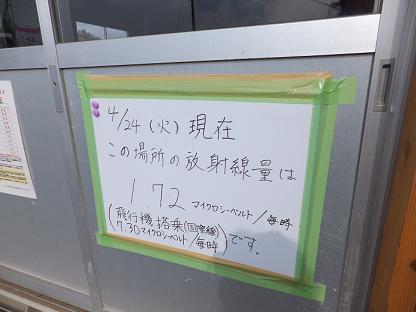 4/24(火)現在
この場所の放射線量は
1.72 マイクロシーベルト/毎時
(飛行機搭乗(国際線)
7.30マイクロシーベルト/毎時)です。